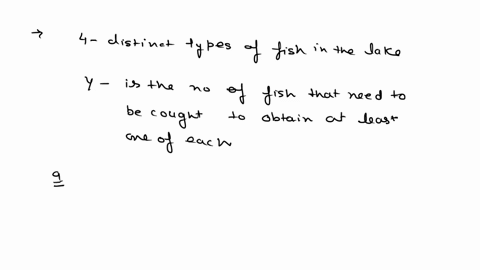 → 4- distinct types of fish in the lake
Y - is the no of fish that need to
be cought to obtain at least
one of each
a